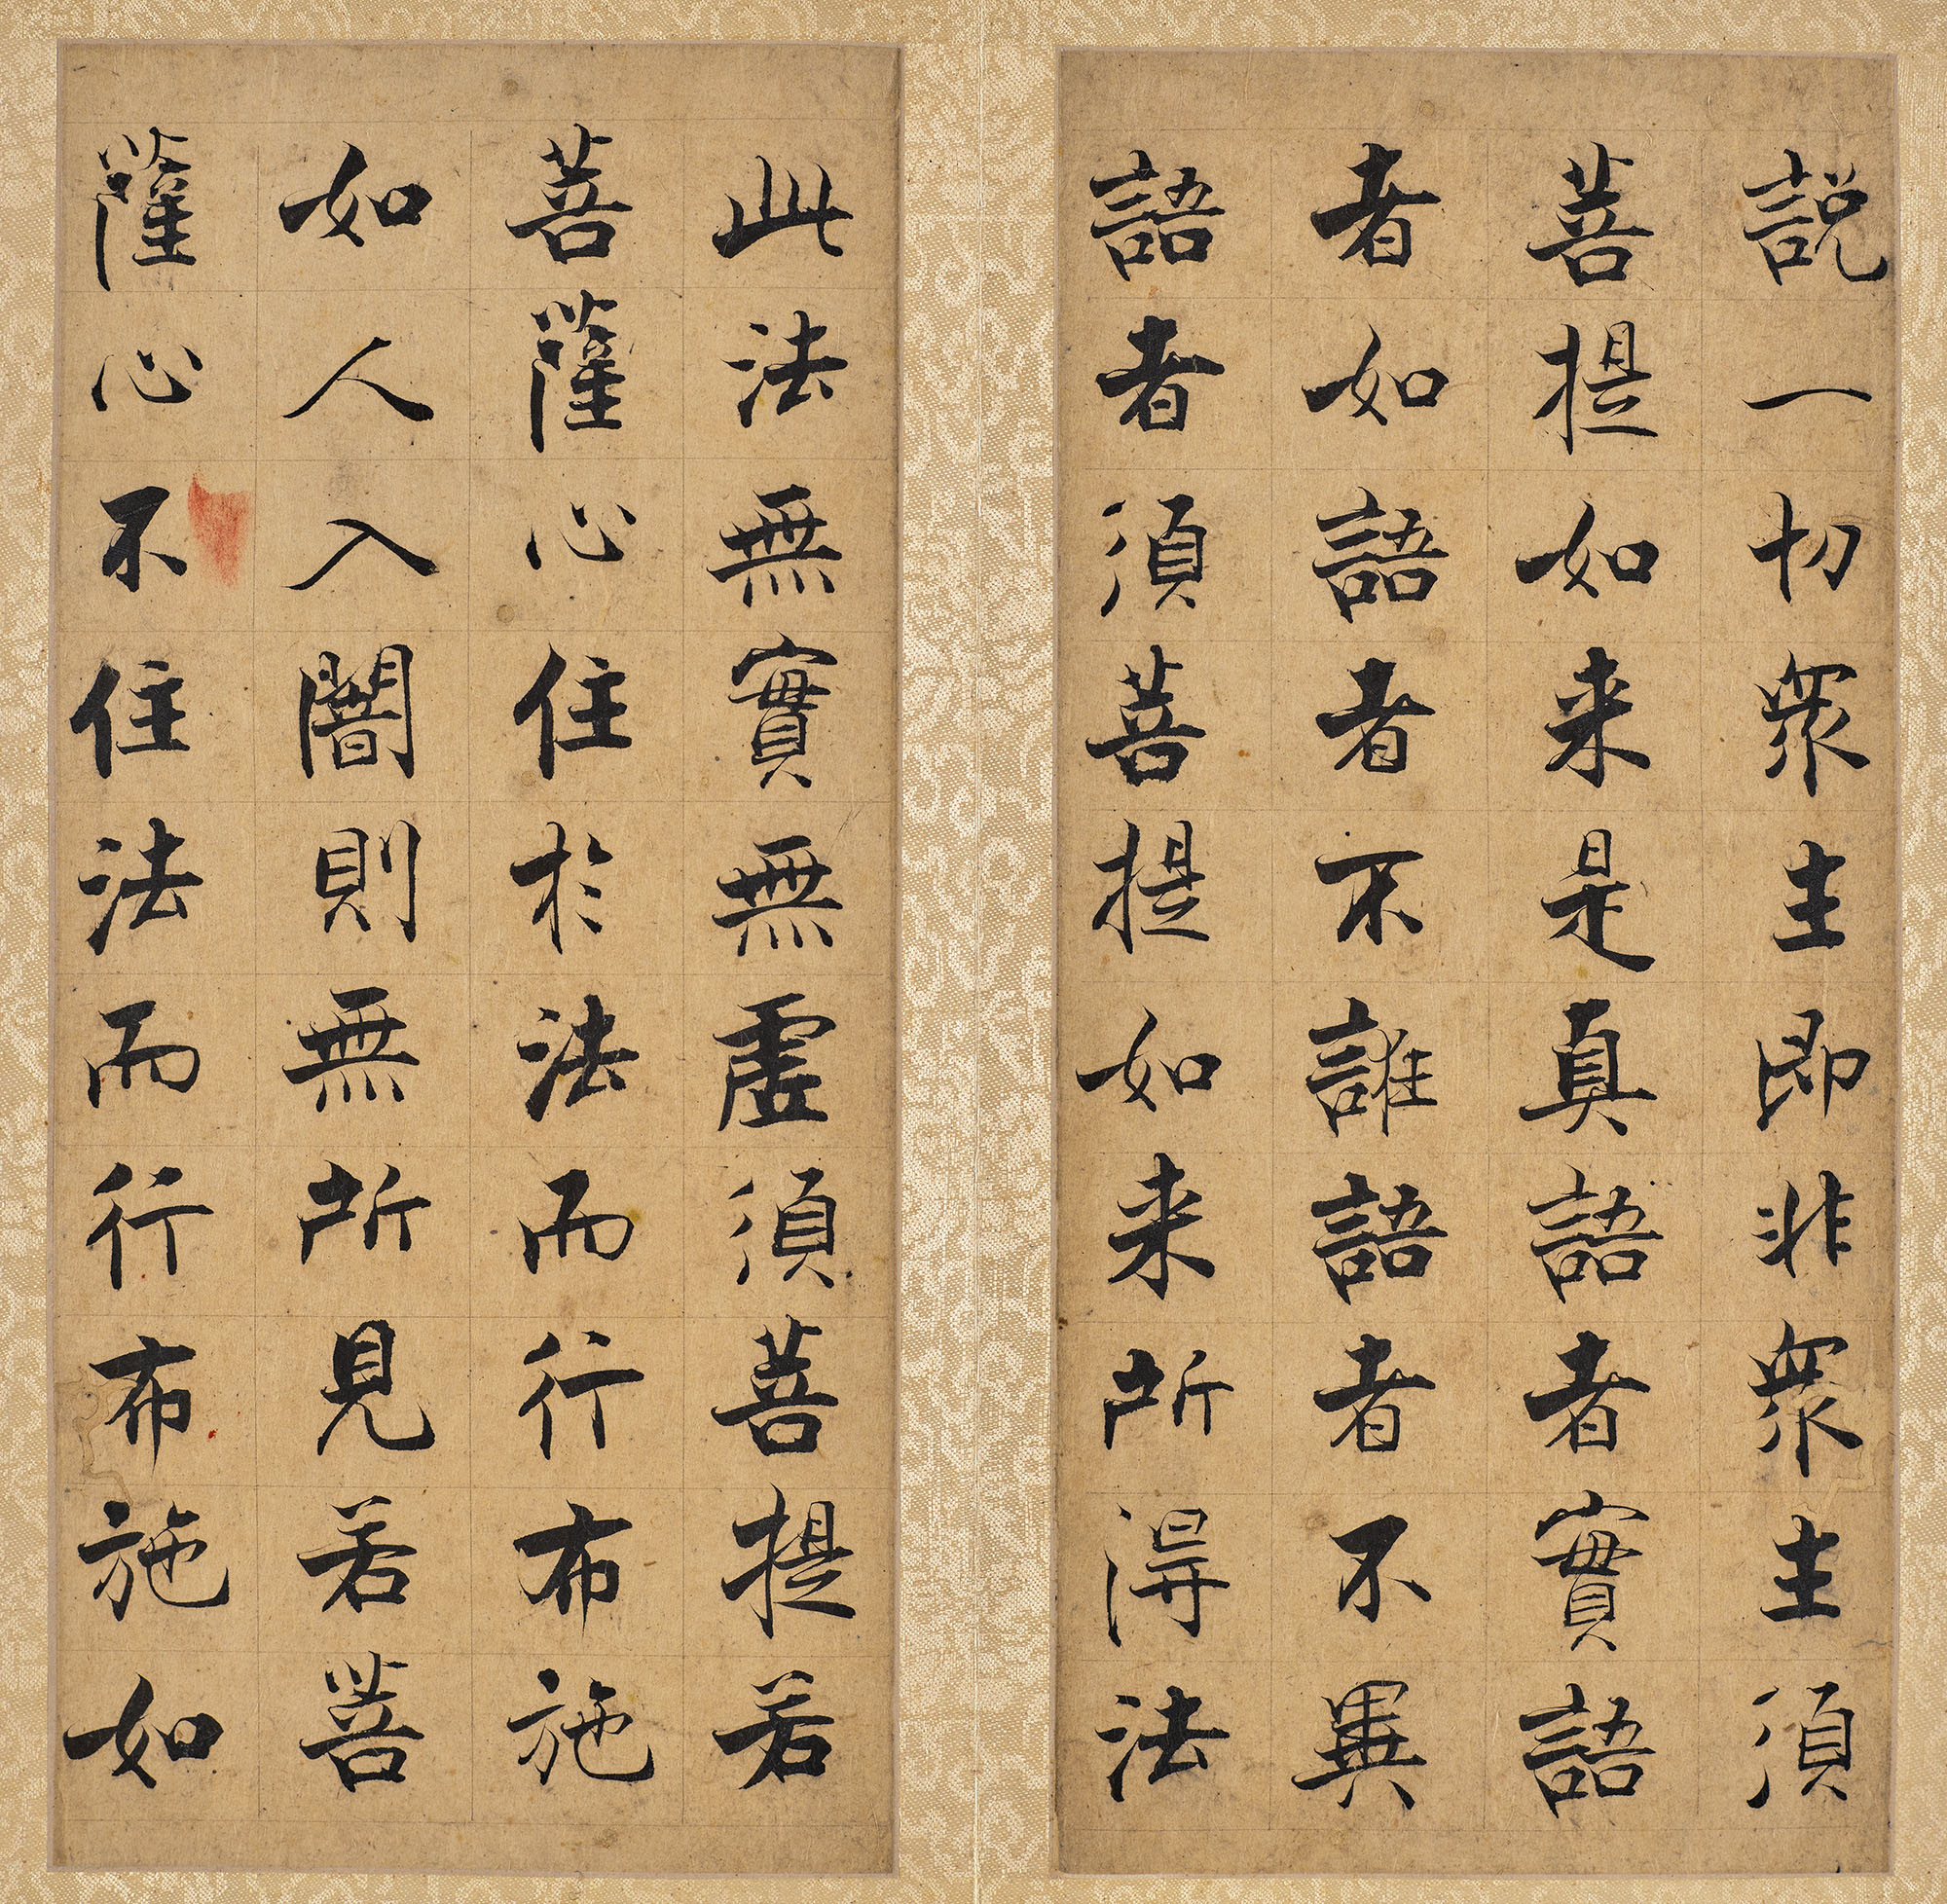 説一切衆生即非衆生須
菩提如来是真語者實語
者如語者不誑語者不異
語者須菩提如来所得法
此法無實無虛須菩提若
菩薩心住於法而行布施
如人入闇則無所見若菩
薩心不住法而行布施如